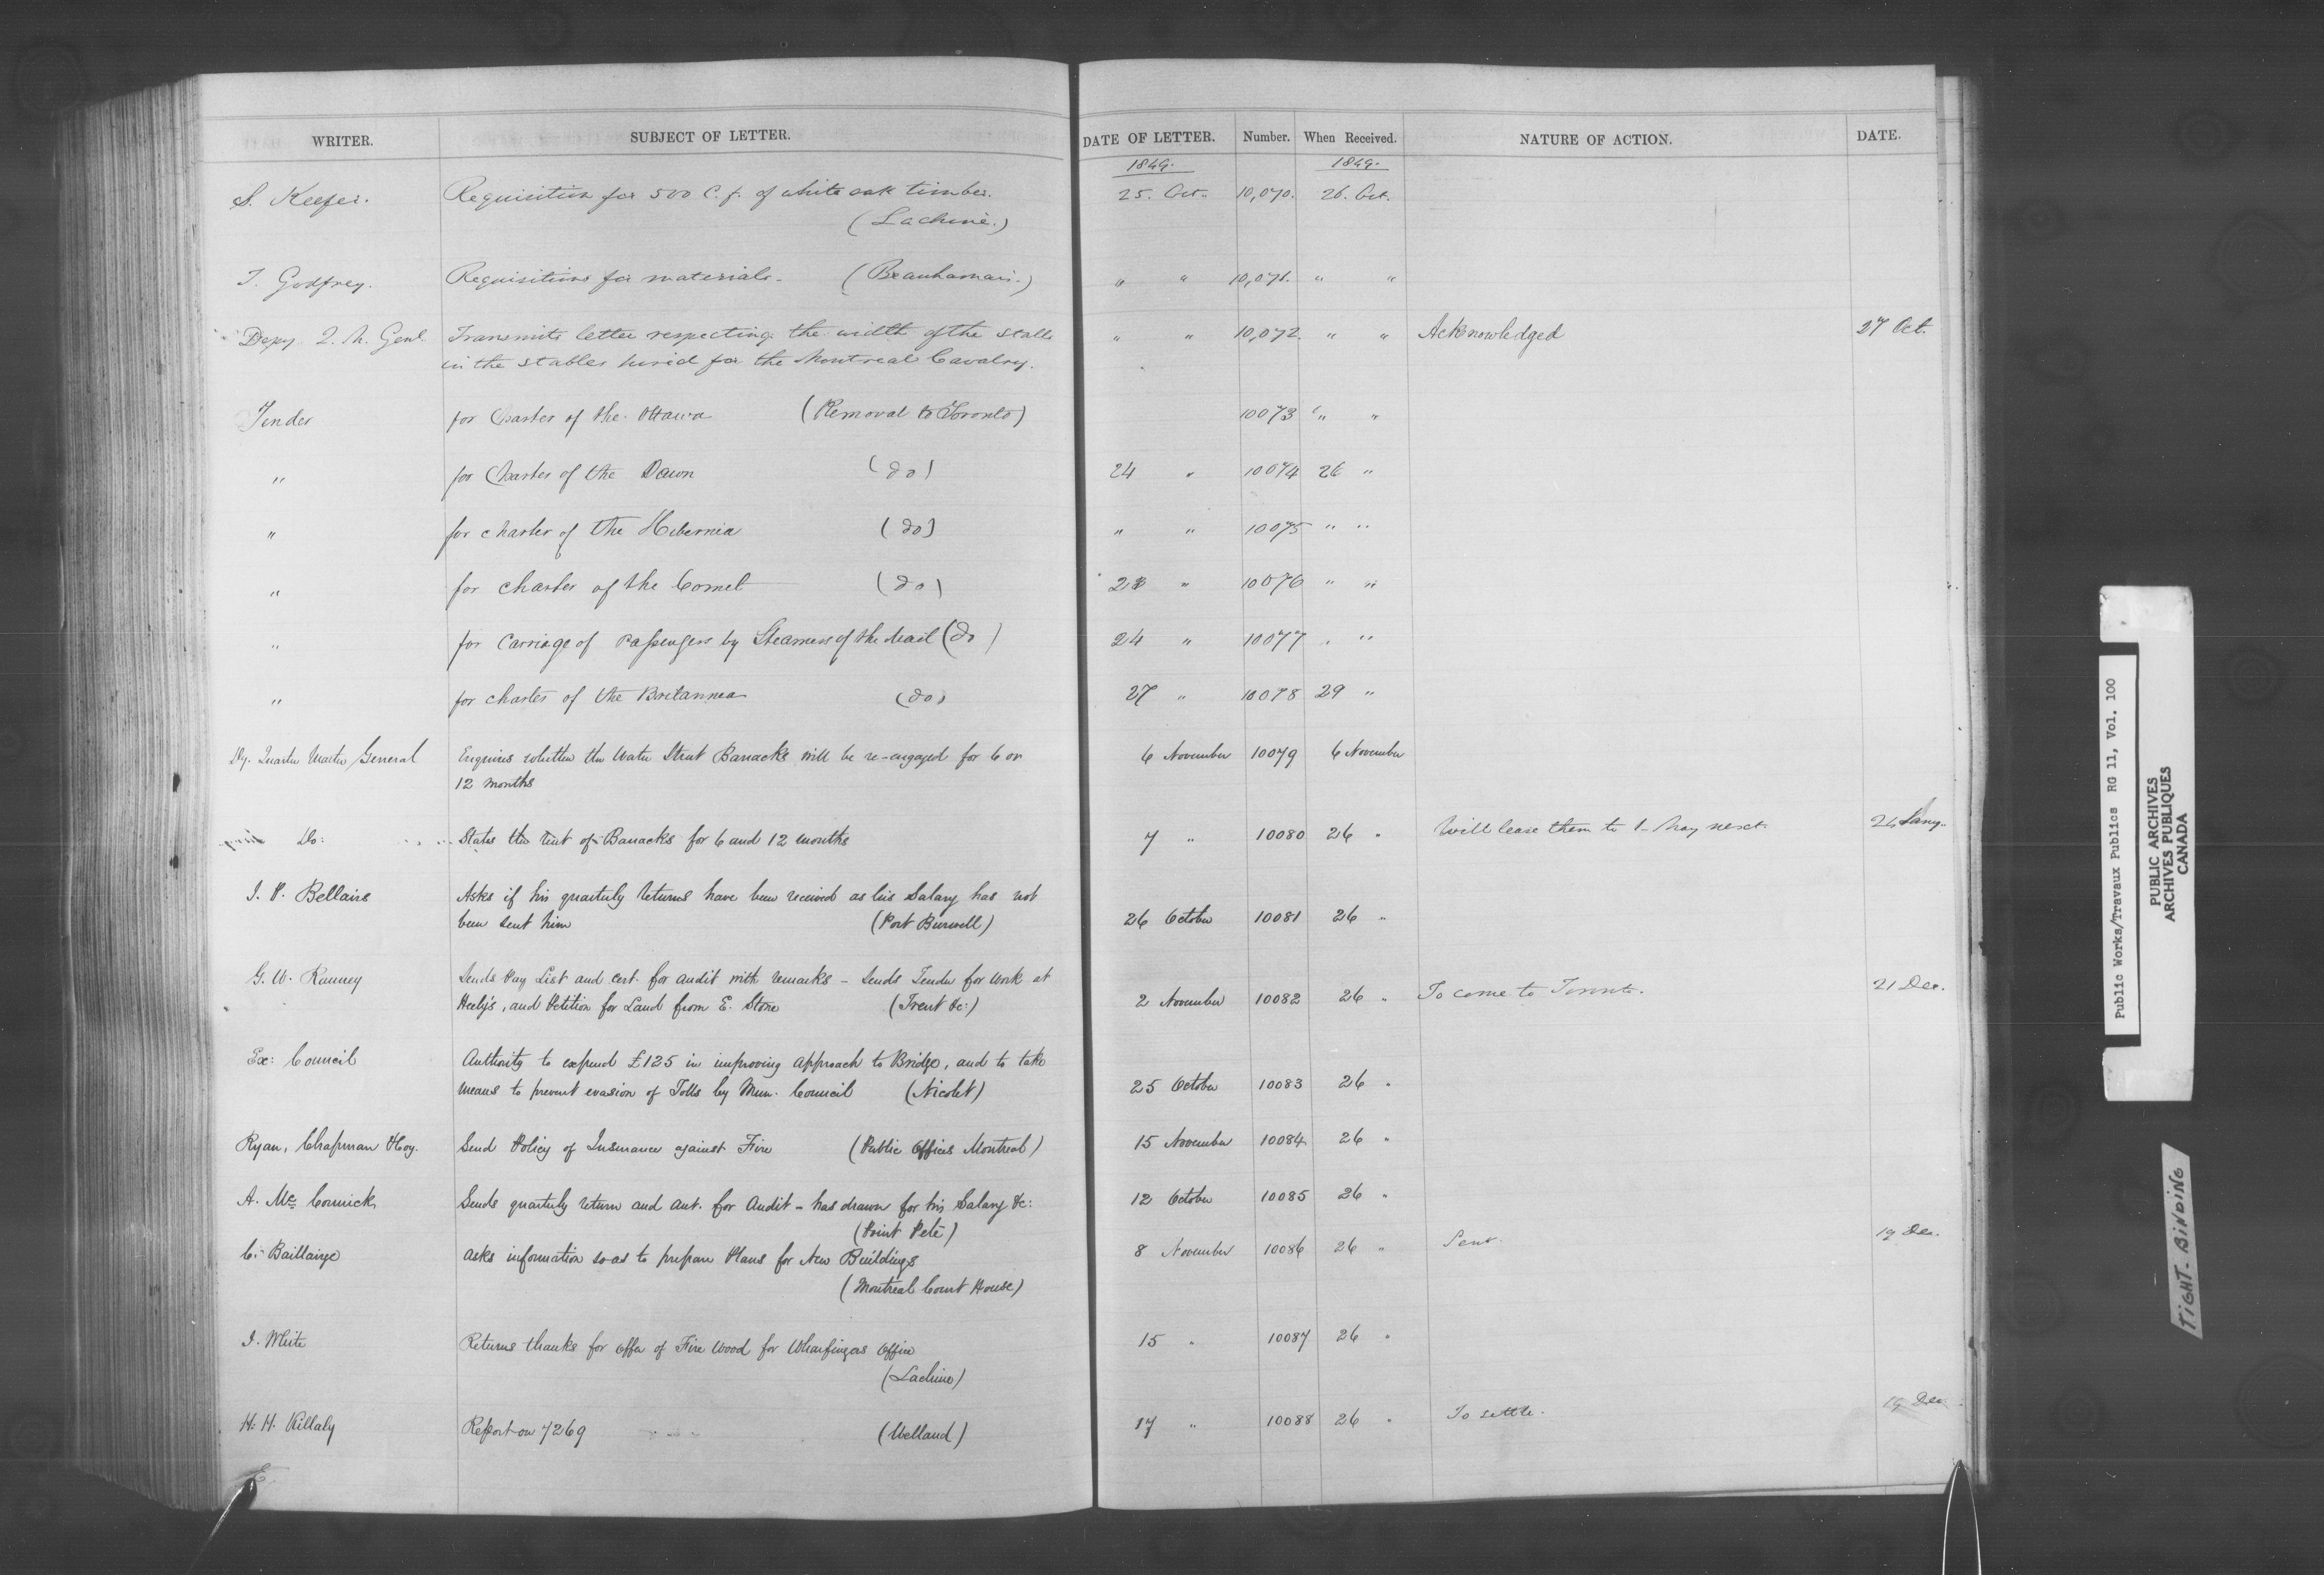 WRITER. SUBJECT OF LETTER. DATE OF LETTER. Number. When Received. NATURE OF ACTION. DATE.
1849. 1849.
S. Keefer. Requisition for 500 C. f. of white oak timber. 25. Oct. 10,070. 26. Oct.
(Lachine.)
T. Godfrey. Requisitions for materials. (Beauharnois.) " " 10,071. " "
Depy Q. M. Genl. Transmits letter respecting the width of the stalls " " 10,072. " " Acknowledged 27 Oct.
in the stables hired for the Montreal Cavalry.
Tender for Charter of the Ottawa (Removal to Toronto) 10073 " "
" for Charter of the Dawn (do) 24 " 10074 26 "
" for charter of the Hibernia (do) " " 10075 " "
" for charter of the Comet (do) " 10076 " "
" for Carriage of Passengers by Steamers of the Mail (do) 24 " 10077 " "
" for charter of the Britannia (do) 27 " 10078 29 "
Dy. Quarter Master General Enquires whether the Water Street Barracks will be re-engaged for 6 or 6 November 10079 6 November
12 months
Do: States the rent of Barracks for 6 and 12 months 7 " 10080 26 " Will lease them to 1 May next. Jany.
J. P. Bellairs Asks if his quarterly returns have been received as his Salary has not
been sent him (Port Burwell) 26 October 10081 26 "
G. W. Ranney Sends Pay List and Cert. for audit with remarks - Sends Tender for work at
Heely's, and Petition for Land from E. Stone (Trent &c:) 2 November 10082 26 " To come to Toronto. 21 Dec.
Ex: Council Authority to expend £125 in improving approach to Bridge, and to take
means to prevent evasion of Tolls by Mun. Council (Nicolet) 25 October 10083 26 "
Ryan, Chapman & Coy. Send Policy of Insurance against Fire (Public Offices Montreal) 15 November 10084 26 "
A. McCormick Sends quarterly return and aut. for Audit - has drawn for his Salary &c: 12 October 10085 26 "
(Point Pelé)
C. Baillairge Asks information so as to prepare Plans for New Buildings 8 November 10086 26 " Sent. 19 Dec.
(Montreal Court House)
J. White Returns thanks for offer of Fire Wood for Wharfingers Office 15 " 10087 26 "
(Lachine)
H. H. Killaly Report on 7269 (Welland) 17 " 10088 26 " To settle. 19 Dec.
Public Works/Travaux Publics RG 11, Vol. 100
PUBLIC ARCHIVES
ARCHIVES PUBLIQUES
CANADA
TIGHT-BINDING